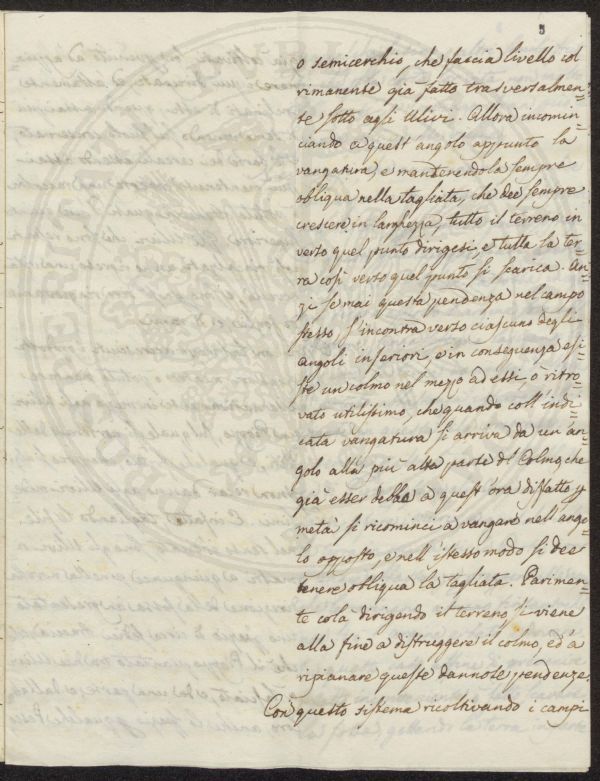 5
o semicerchio, che faccia livello col
rimanente già fatto trasversalmen=
te sotto agli Ulivi. Allora incomin=
ciando a quest'angolo appunto la
vangatura, e mantenendola sempre
obliqua nella tagliata, che dee sempre
crescere in larghezza, tutto il terreno in
verso quel punto dirigesi, e tutta la ter=
ra così verso quel punto si scarica. An=
zi se mai questa pendenza nel campo
stesso, s'incontra verso ciascuno degli
angoli inferiori, e in conseguenza esi=
ste un colmo nel mezzo ad essi, ò ritro=
vato utilissimo, che quando coll'indi=
cata vangatura si arriva da un an=
golo alla più alta parte del Colmo, che
già esser debbe a quest'ora disfatto p
metà si ricominci a vangare nell'ango=
lo opposto, e nell'istesso modo si dee
tenere obliqua la tagliata. Parimen=
te cola dirigendo il terreno, si viene
alla fine a distruggere il colmo, ed a
ripianare queste dannose pendenze.
Con questo sistema ricoltivando i campi